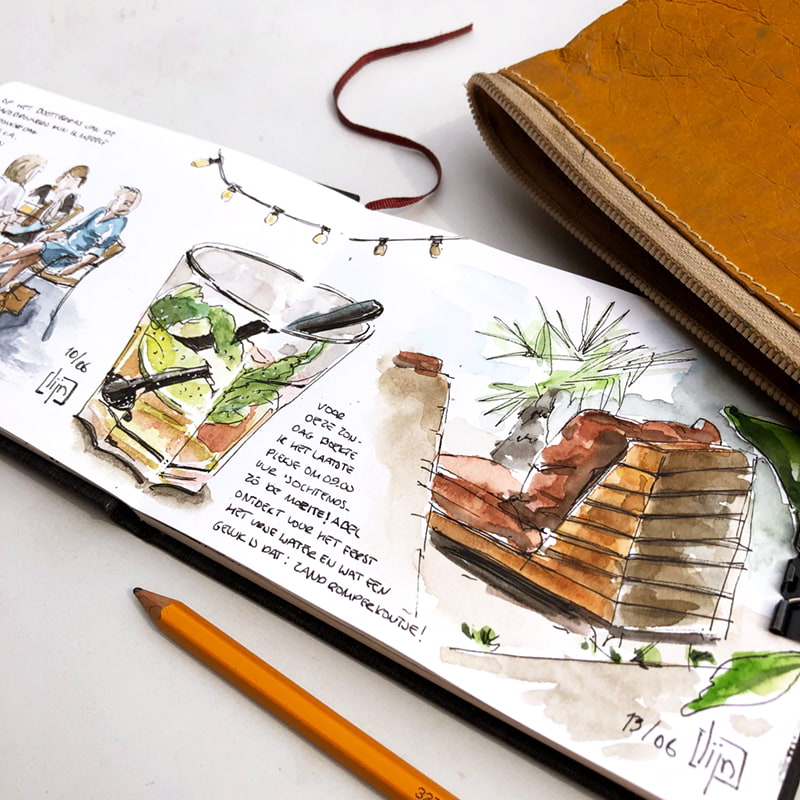 OP HET VAN DE
10/06
[lijn]
VOOR
DEZE ZON-
DAG BOEKTE
IK HET LAATSTE
PLEKJE OM 09.00
UUR 'SOCHTENDS.
ZÓ DE MOEITE! ABEL
ONTDEKT VOOR HET EERST
HET VRIJE WATER EN WAT EEN
GELUK IS DAT: ZANDROMPERKONTJE!
13/06 [lijn]